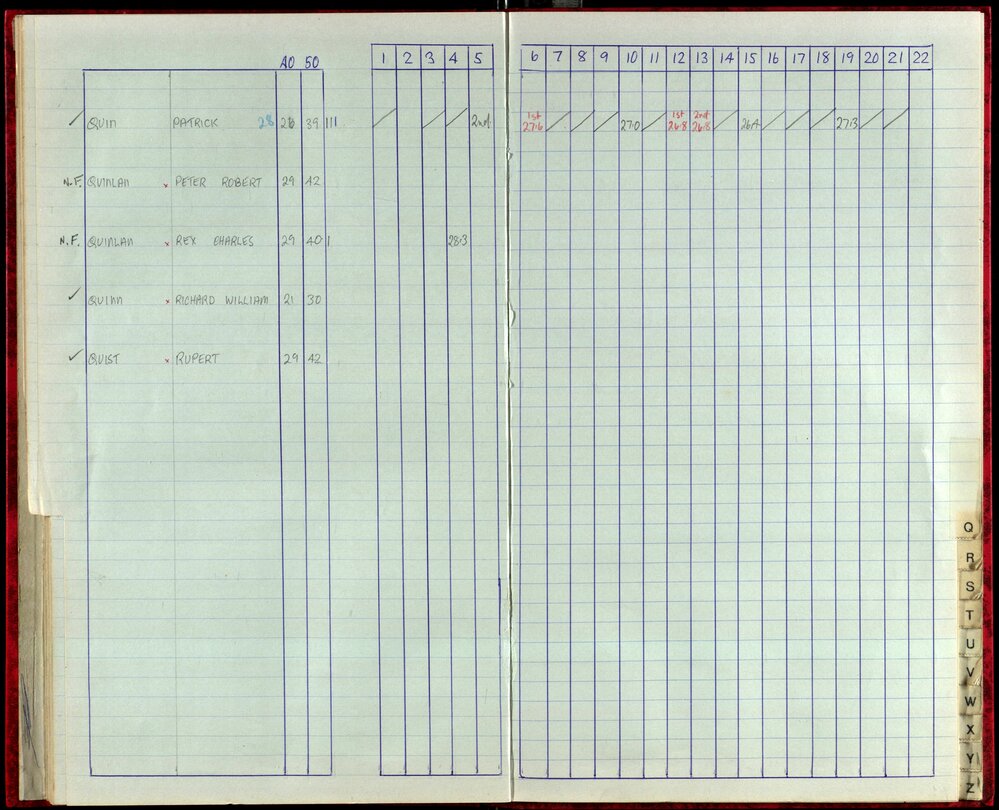 40 50 1 2 3 4 5 6 7 8 9 10 11 12 13 14 15 16 17 18 19 20 21 22
✓ QUIN PATRICK 28 26 39 III / / / 2nd 1st 27.6 / / / 27.0 / 1st 26.8 2nd 26.8 / 26.4 / / / 27.3 / /
N.F. QUINLAN x PETER ROBERT 29 42
N.F. QUINLAN x REX CHARLES 29 40 I 28.3
✓ QUINN x RICHARD WILLIAM 21 30
✓ QUIST x RUPERT 29 42
Q
R
S
T
U
V
W
X
Y
Z